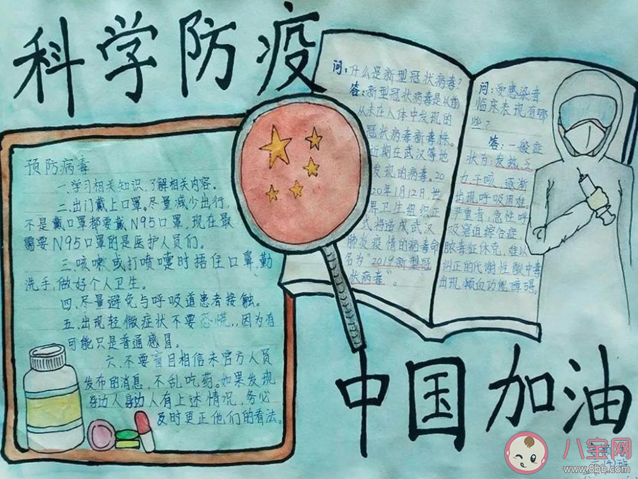 科学防疫
预防病毒
一.学习相关知识、了解相关内容。
二.出门戴上口罩。尽量减少出行。
不是戴口罩都要戴N95口罩,现在最
需要N95口罩的是医护人员们。
三.咳嗽或打喷嚏时捂住口罩勤
洗手,做好个人卫生。
四.尽量避免与呼吸道患者接触。
五.出现轻微症状不要恐慌..因为有
可能只是普通感冒。
六.不要盲目相信未官方人员
发布的消息,不乱吃药。如果发现
身边人身边人有上述情况,务必
及时更正他们的看法.
问:什么是新型冠状病毒?
答:新型冠状病毒是以前
从未在人体中发现的
冠状病毒新毒株。
近期在武汉等地
发现的病毒。20
20年1月12日世
界卫生组织正
式将造成武汉
肺炎疫情的病毒命
名为"2019新型冠
状病毒"
问:受感染者
临床表现有哪
些?
答:一般症
状为:发热、乏
力、干咳、逐渐
出现呼吸困难
严重者:急性呼
吸窘迫综合征
脓毒症休克、难以
纠正的代谢性酸中毒
出现凝血功能障碍。
中国加油
八宝网
www.8bb.com